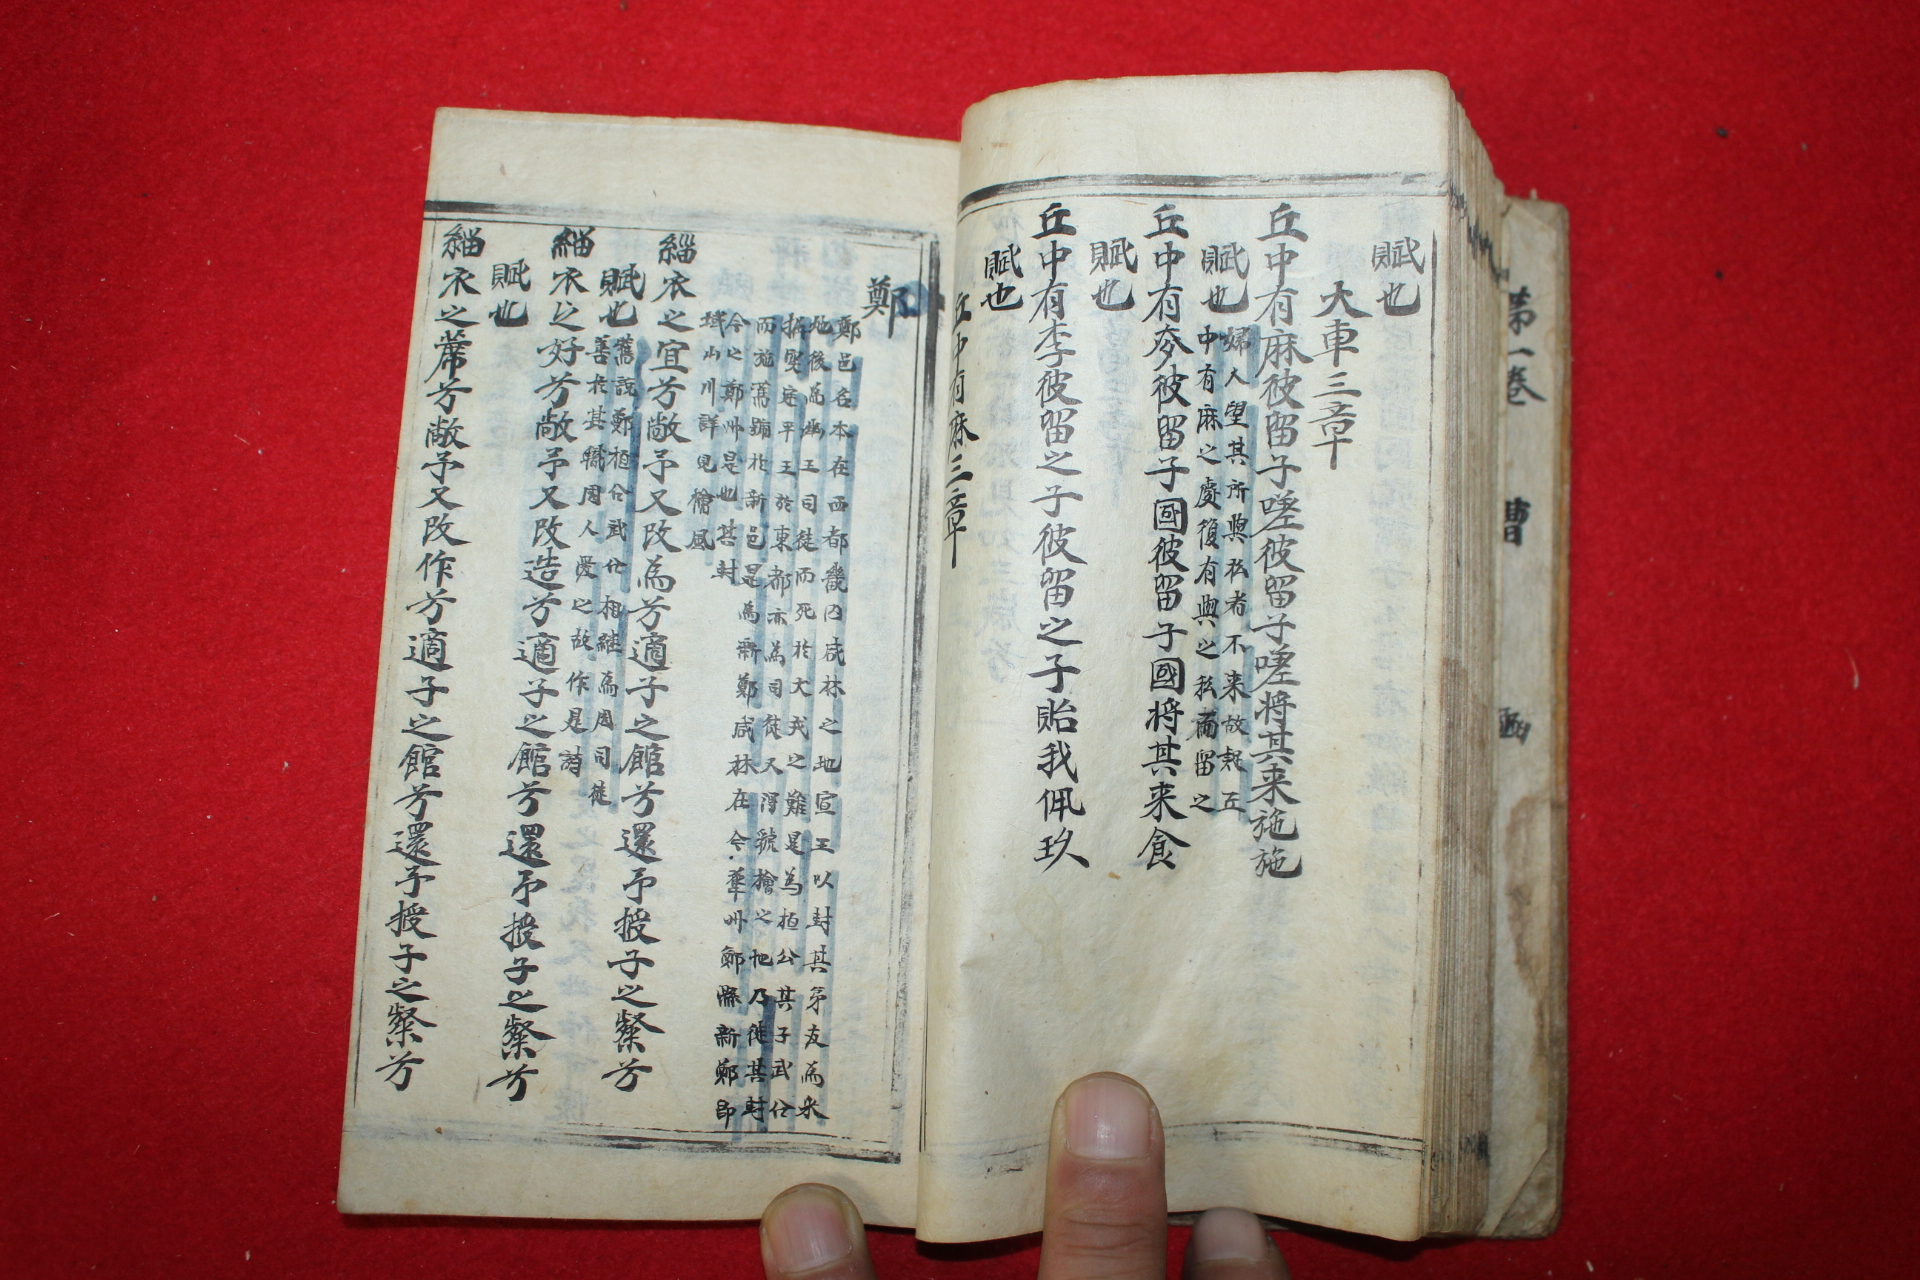 賦也
大車三章
丘中有麻彼留子嗟彼留子嗟将其来施施
賦也
婦人望其所與私者不来故疑丘
中有麻之處復有與之私而留之
丘中有麥彼留子國彼留子國将其来食
賦也
丘中有李彼留之子彼留之子貽我佩玖
賦也
丘中有麻三章
鄭
鄭邑名本在西都畿内咸林之地宣王以封其弟友為采
地後為幽王司徒而死於犬戎之難是為桓公其子武公
掘突定平王於東都亦為司徒又得虢檜之地乃徙其封
而施舊號於新邑是為新鄭咸林在今華州鄭縣新鄭即
今之鄭州是也其封
域山川詳見檜風
緇衣之宜兮敝予又改為兮適子之館兮還予授子之粲兮
賦也
舊說鄭桓公武公相継為周司徒
善於其職周人愛之故作是詩
緇衣之好兮敝予又改造兮適子之館兮還予授子之粲兮
賦也
緇衣之蓆兮敝予又改作兮適子之館兮還予授子之粲兮
第一卷
曹